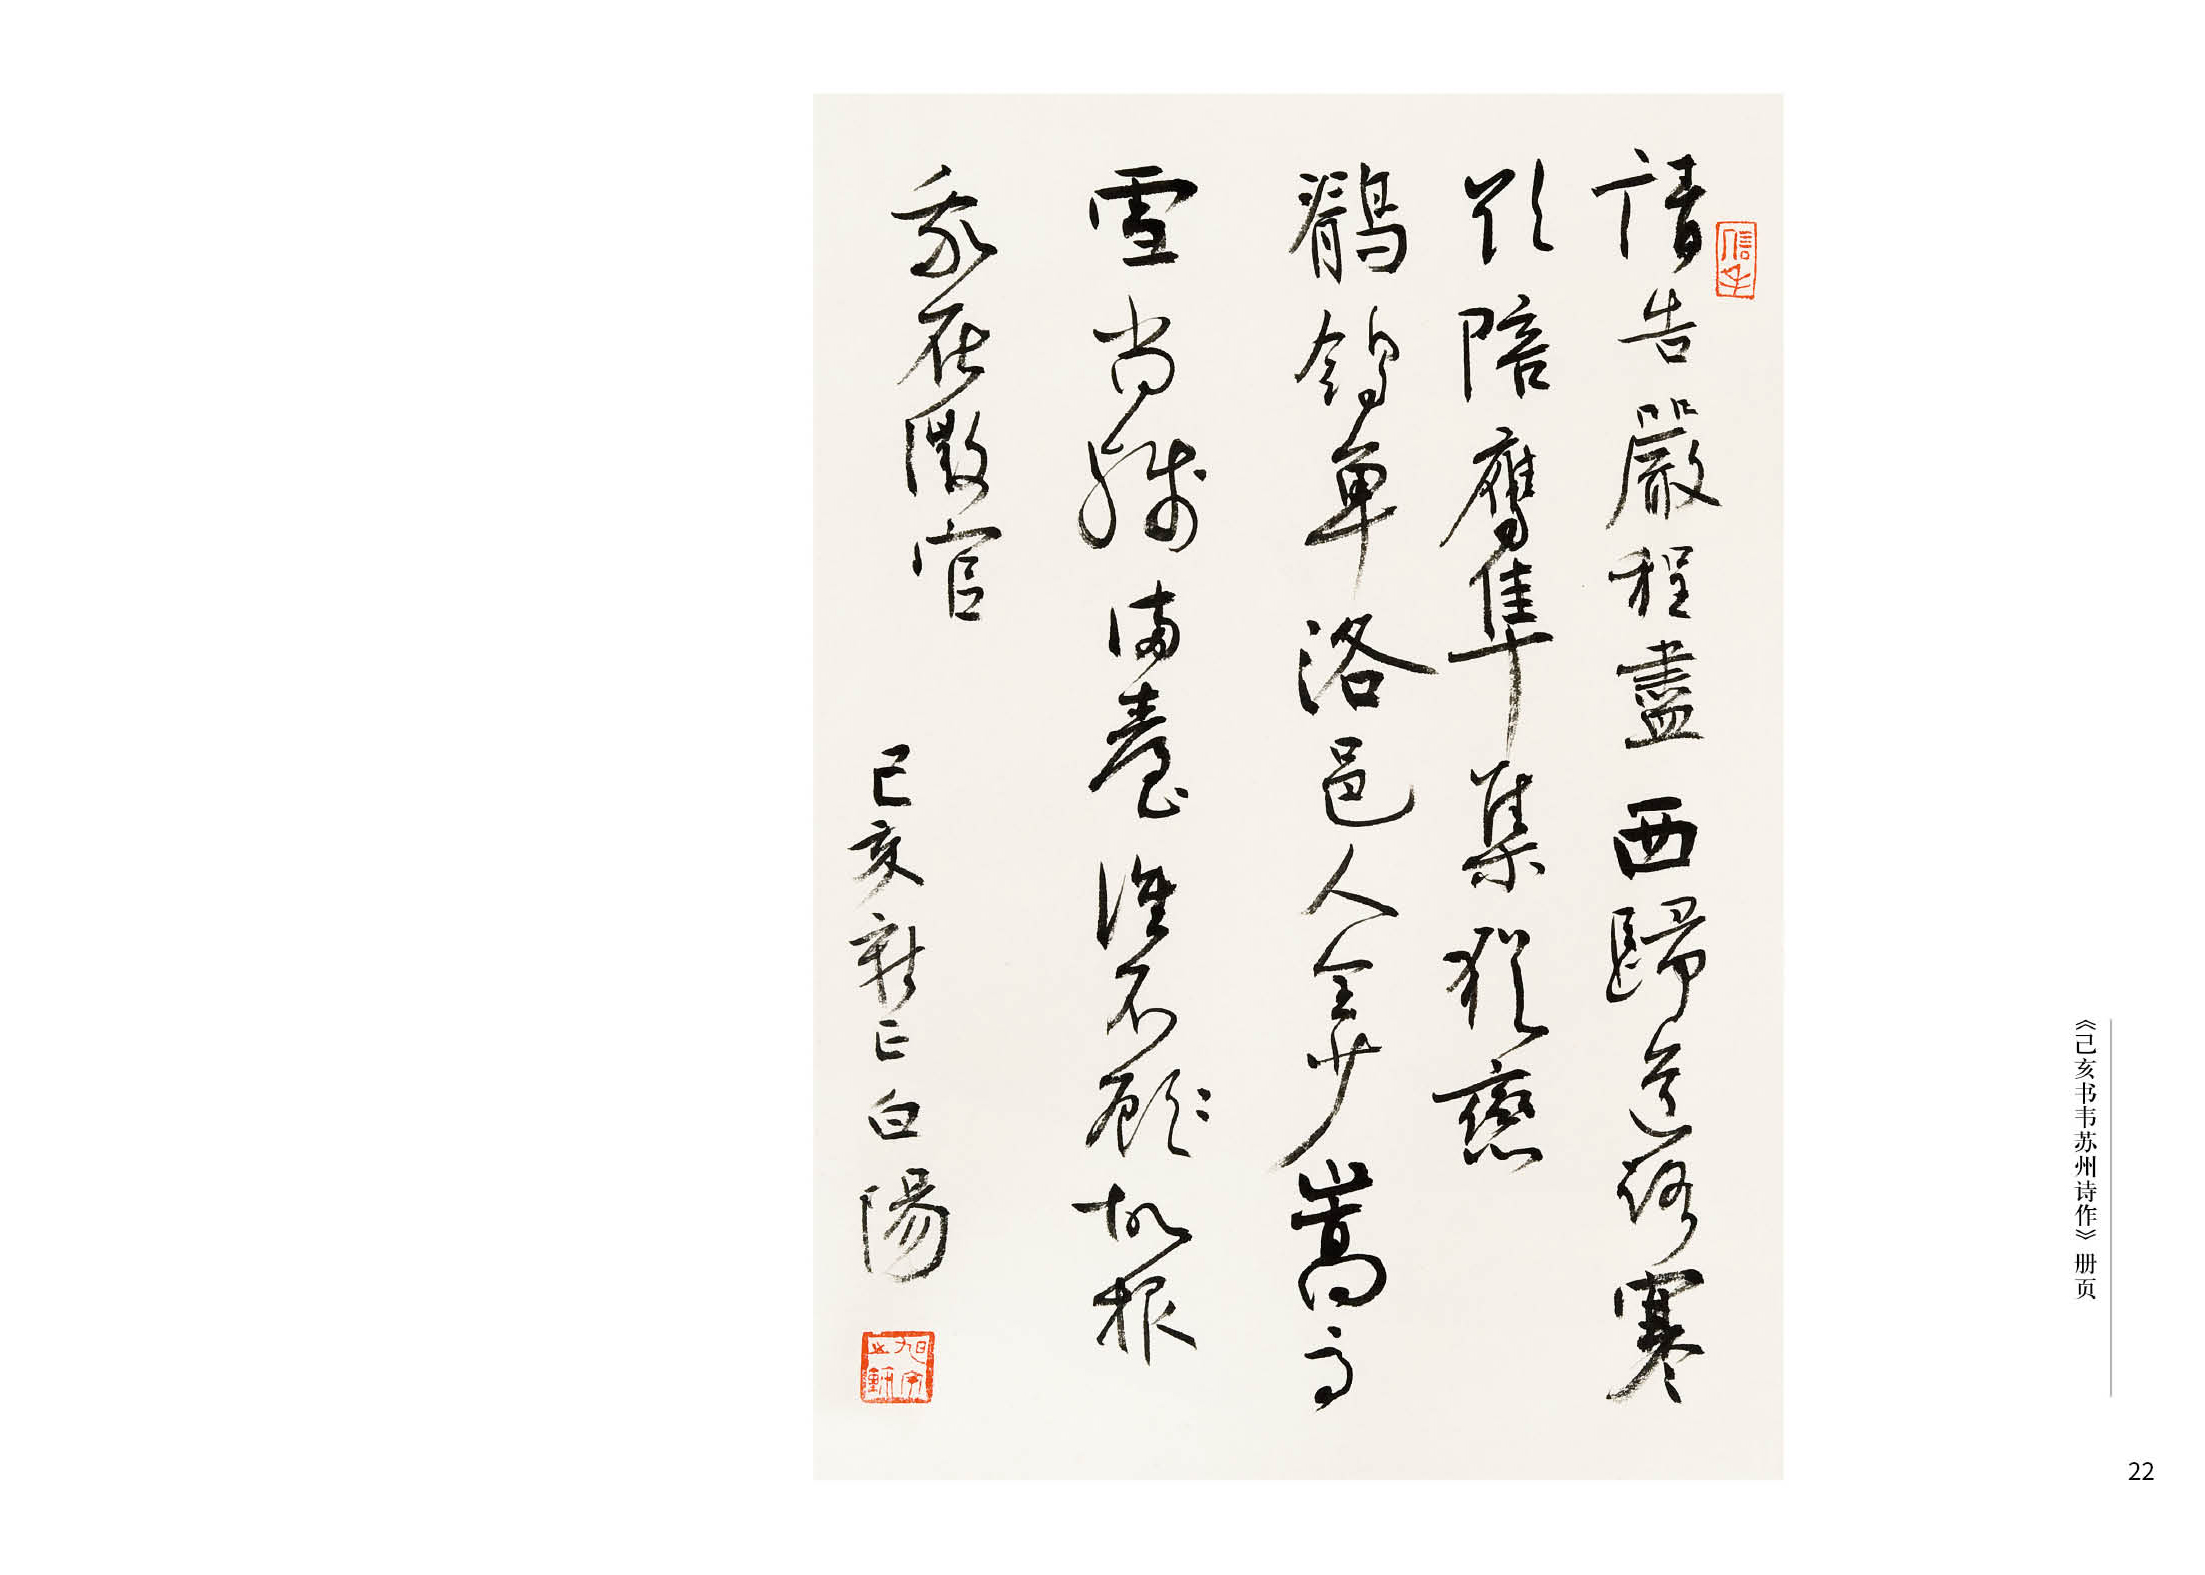 請告嚴程盡西歸道路寒
欲陪鷹隼集猶戀
鶺鴒單洛邑人全少嵩高
雪尚殘滿臺誰不顧故報
我在微官
己亥新正白陽
旭宇之鉥
《己亥书韦苏州诗作》册页
22